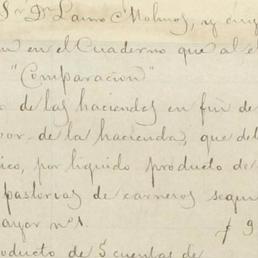 Sr Dr Lano C Molmos, y
en en el Cuaderno que al e
"Comparacion"
o de las haciendas en fin de
vor de la hacienda, que del
ico, por líquido producto de
pastorias de carneros segun
ayor nº 1. $ 9
oducto de 5 cuentas de